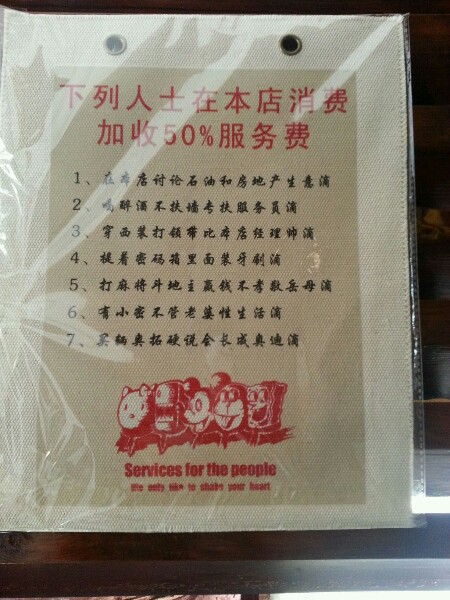 下列人士在本店消费
加收50%服务费
1、在本店讨论石油和房地产生意滴
2、喝醉酒不扶墙专扶服务员滴
3、穿西装打领带比本店经理帅滴
4、提着密码箱里面装牙刷滴
5、打麻将斗地主赢钱不孝敬岳母滴
6、有小密不管老婆性生活滴
7、买辆奥拓硬说会长成奥迪滴
Services for the people
We only like to shake your heart